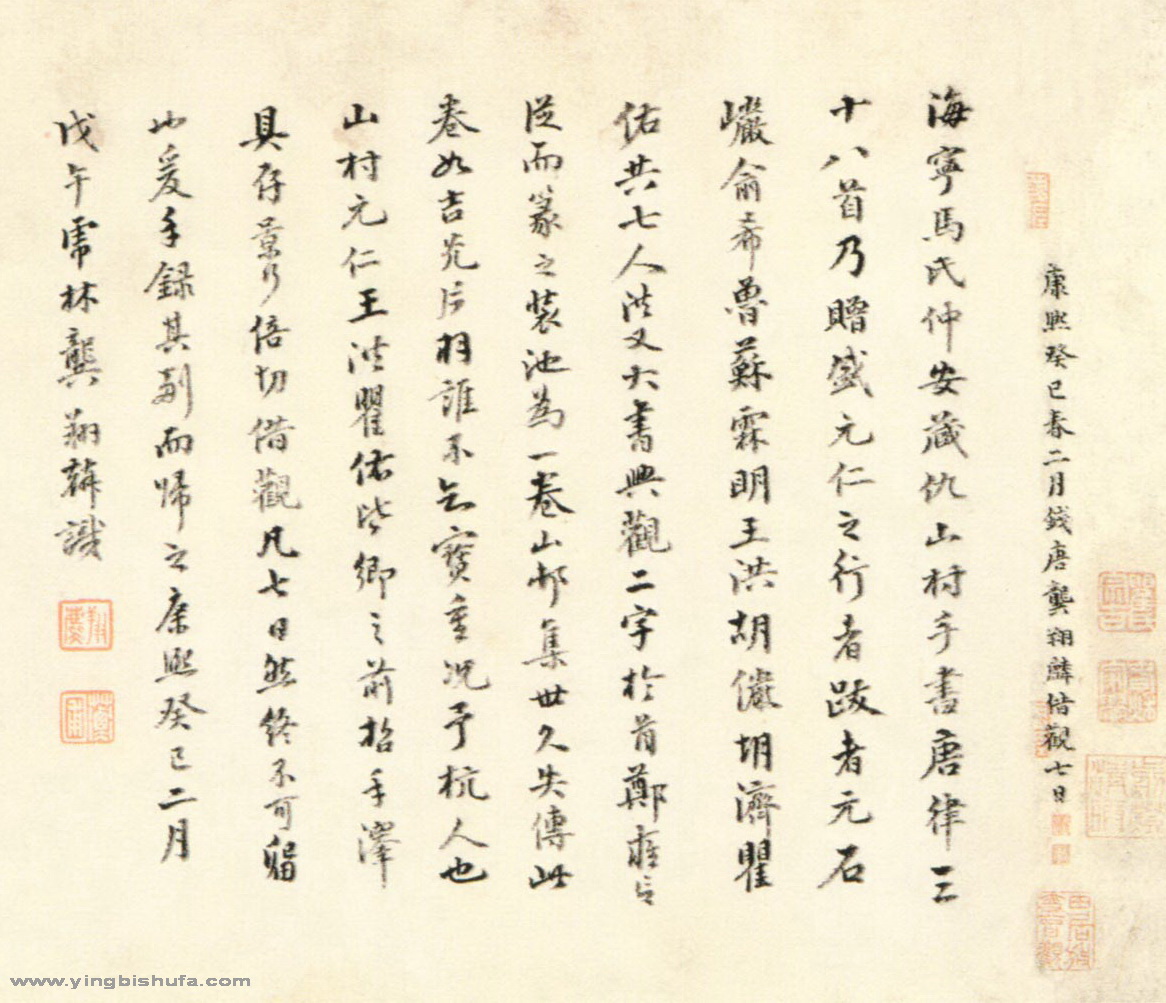 康熙癸巳春二月錢唐龔翔麟借觀七日
海寧馬氏仲安藏仇山村手書唐律三
十八首乃贈盛元仁之行者跋者元石
巘俞希魯蘇霖明王洪胡儼胡濟瞿
佑共七人洪又大書興觀二字於首鄭雍言
從而篆之裝池為一卷山邨集世久失傳此
卷如吉光片羽誰不知寶重況予杭人也
山村元仁王洪瞿佑皆鄉之前招手澤
具存景行倍切借觀凡七日然終不可留
也爰手錄其副而歸之康熙癸巳二月
戊午 林龔翔麟識
www.yingbishufa.com